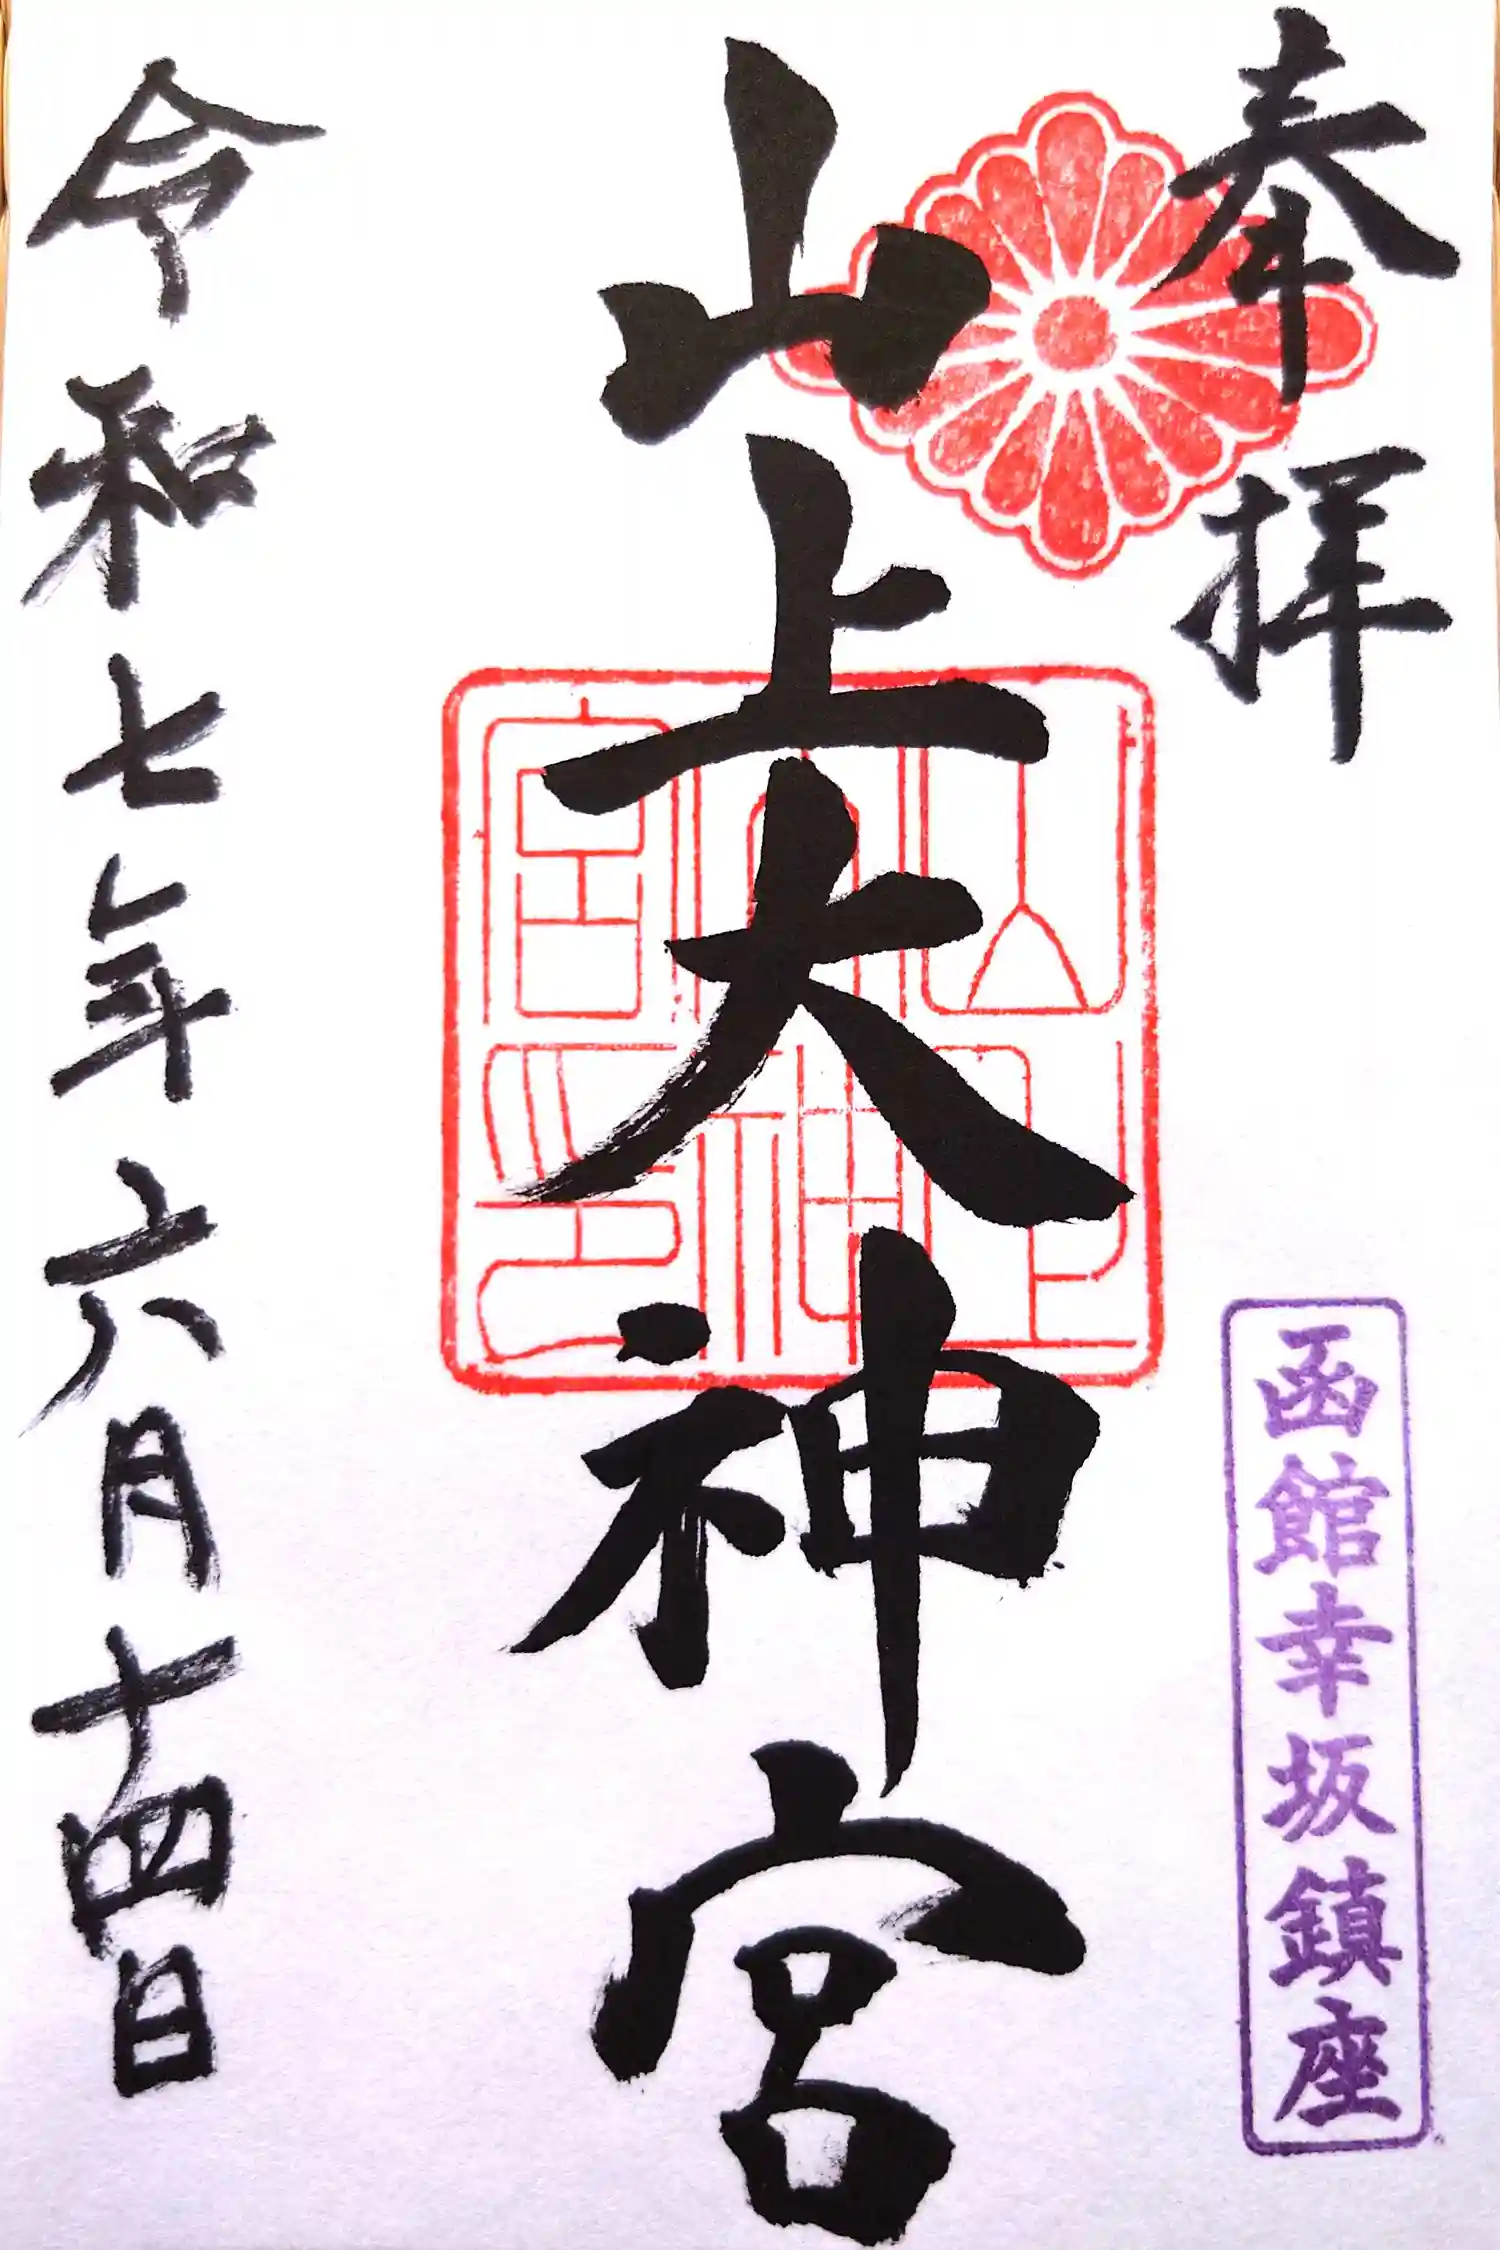 奉拝
函館幸坂鎮座
山上大神宮
山上
大神
宮印
令和七年六月十四日